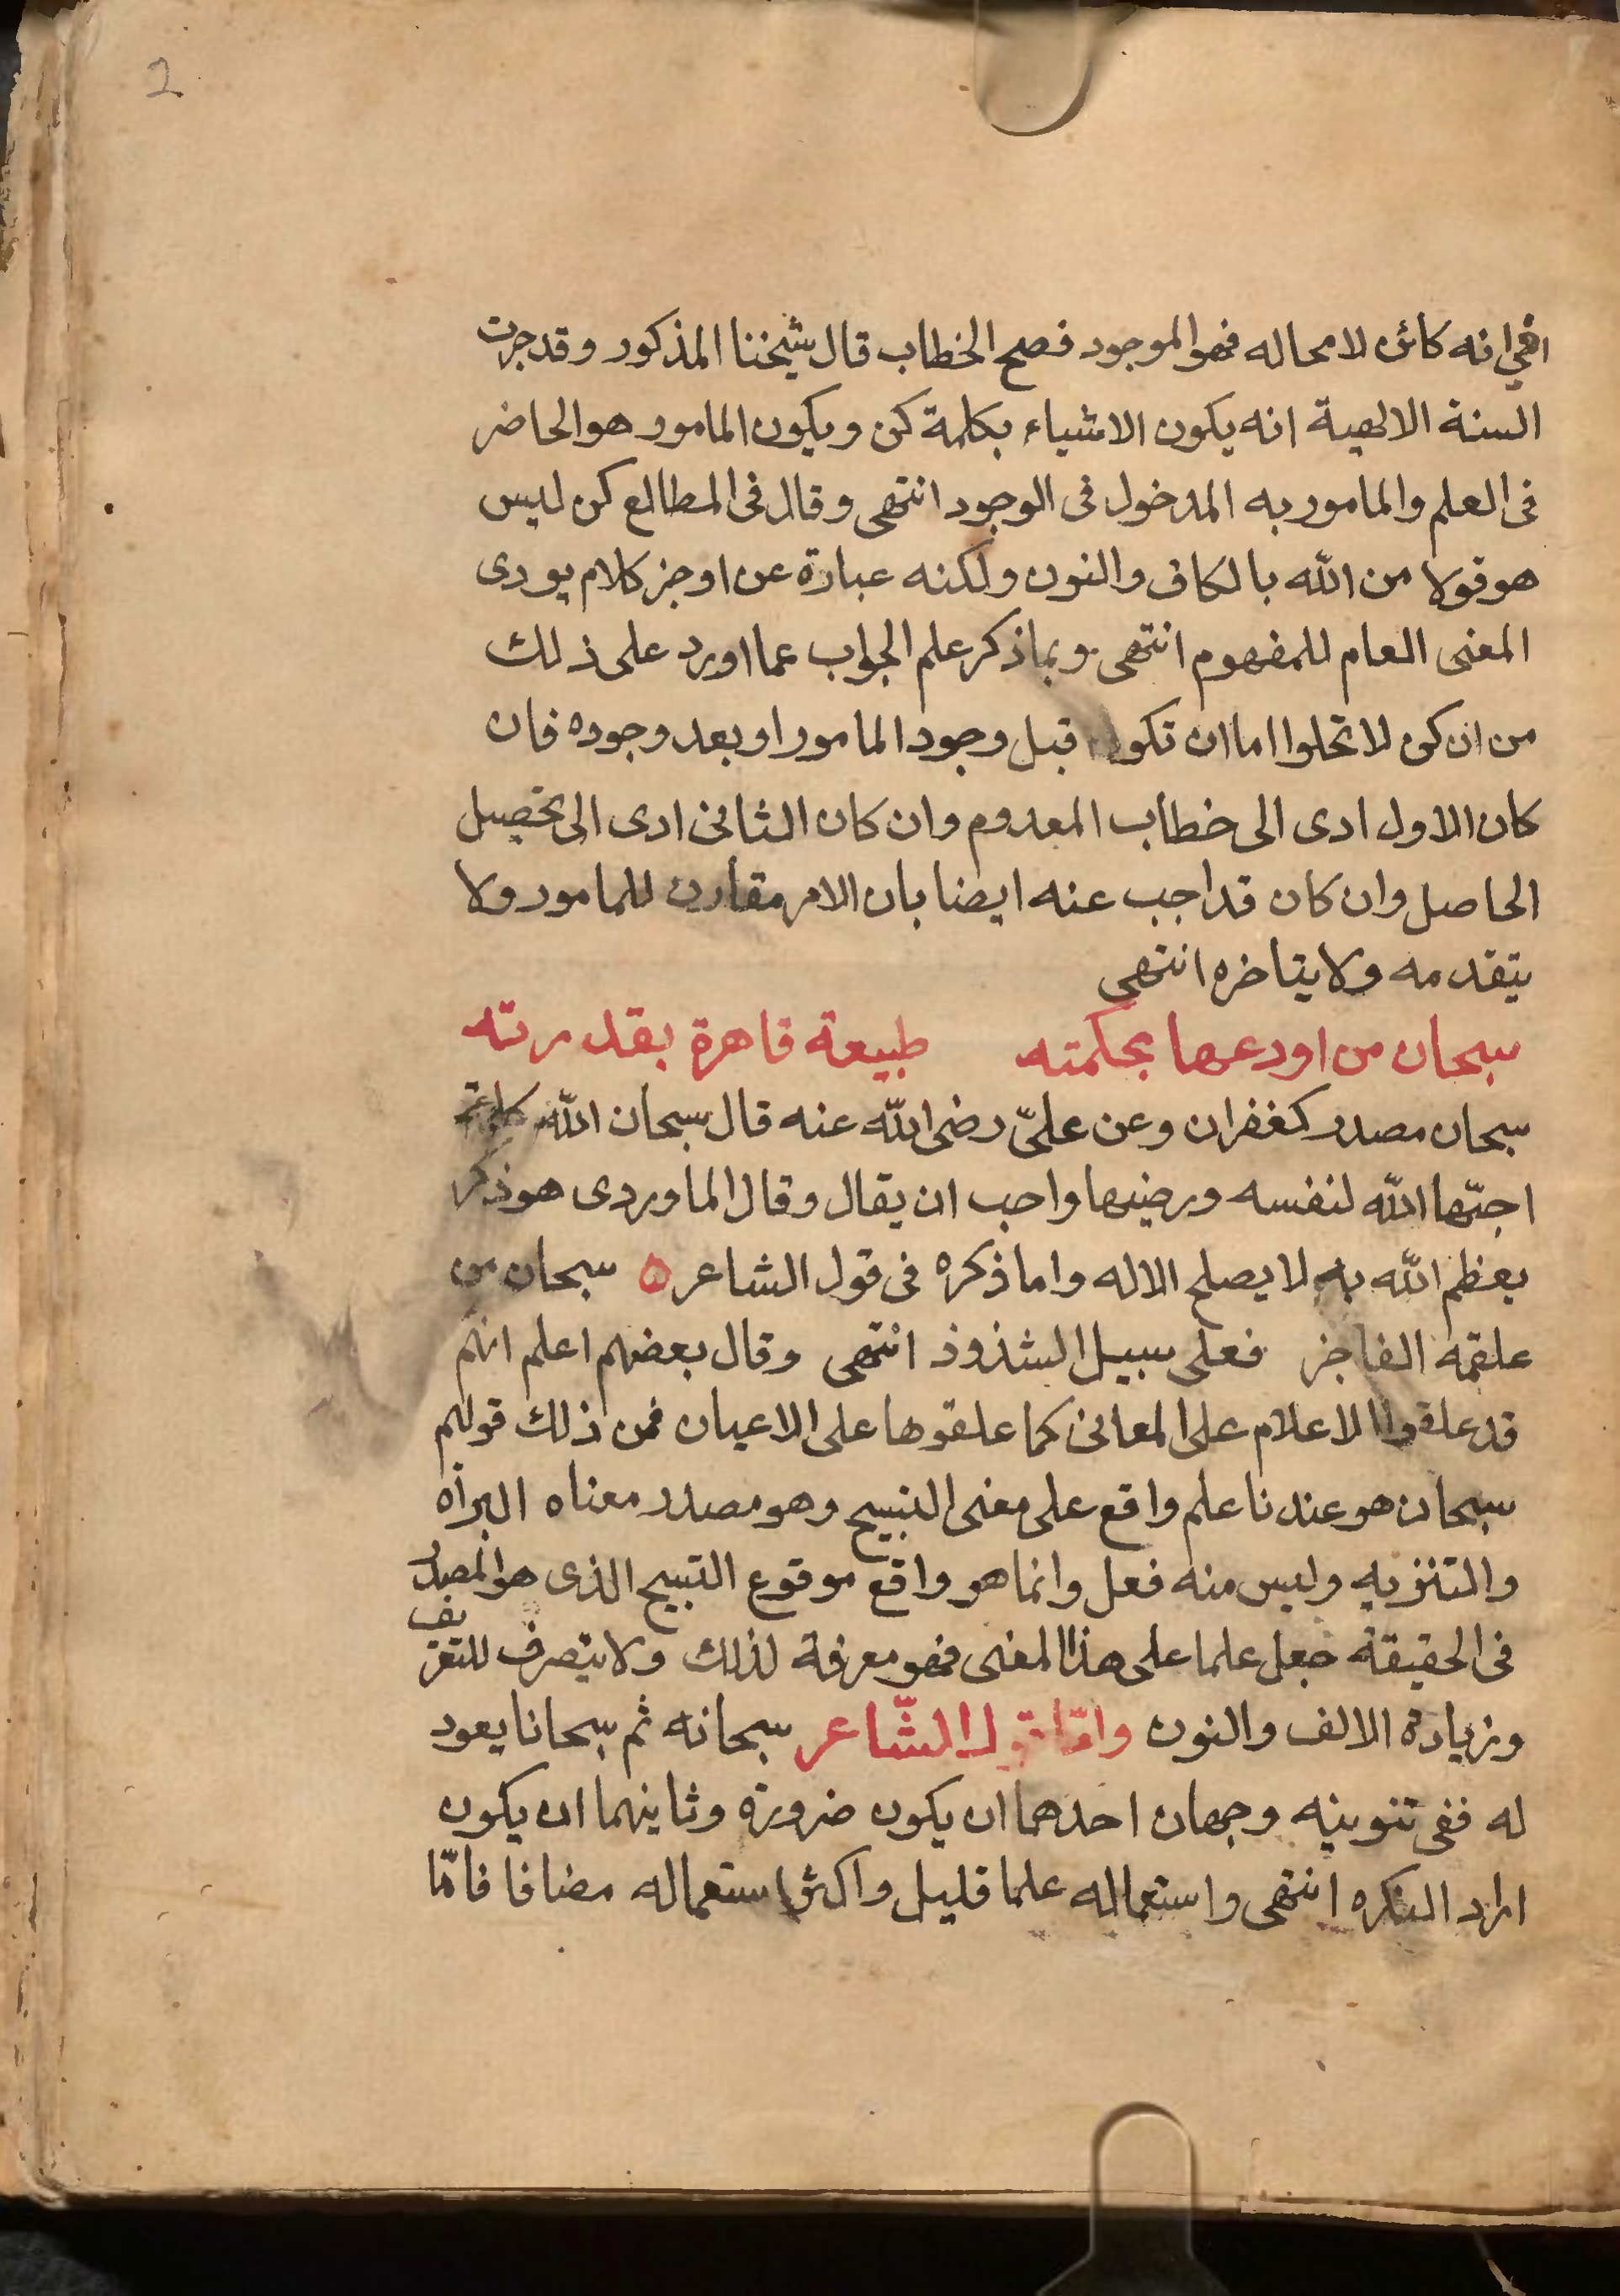 2
انه كائن لا محاله فهو الموجود فصح الخطاب قال شيخنا المذكور وقد جرت
السنة الالهية انه يكون الاشياء بكلمة كن ويكون المامور هو الحاضر
فى العلم والمامور به المدخول فى الوجود انتهى وقال فى المطالع كن ليس
هو قولا من الله بالكاف والنون ولكنه عبارة عن اوجز كلام يودى
المعنى العام للمفهوم انتهى وبماذكر علم الجواب عما اورد على ذلك
من ان كن لا تخلوا اما ان تكون قبل وجود المامور او بعد وجوده فان
كان الاول ادى الى خطاب المعدوم وان كان الثانى ادى الى تحصيل
الحاصل وان كان قد اجب عنه ايضا بان الامر مقارن للمامور ولا
يتقدمه ولا يتاخره انتهى
سبحان من اودعها بحكمته طبيعة قاهرة بقدرته
سبحان مصدر كغفران وعن علىّ رضى اللّه عنه قال سبحان اللّه كلمة
احبّها اللّه لنفسه ورضيها واحب ان يقال وقال الماوردى هو ذكر
يعظم اللّه به لا يصلح الا له واما ذكره فى قول الشاعر ه سبحان من
علقمة الفاخر فعلى سبيل الشذوذ انتهى وقال بعضهم اعلم انهم
قد علقوا الاعلام على المعانى كما علقوها على الاعيان فمن ذلك قولهم
سبحان هو عندنا علم واقع على معنى التسبيح وهو مصدر معناه البرآه
والتنزيه وليس منه فعل وانما هو واقع موقوع التسبيح الذى هو المصدر
فى الحقيقة جعل علما على هذا المعنى فهو معرفة لذلك ولا يتصرف للتعريف
وزيادة الالف والنون وامّا قول الشّاعر سبحانه ثم سبحانا يعود
له ففى تنوينه وجهان احدهما ان يكون ضرورة وثانيهما ان يكون
اراد النكره انتهى واستعماله علما قليل واكثر استعماله مضافا فامّا